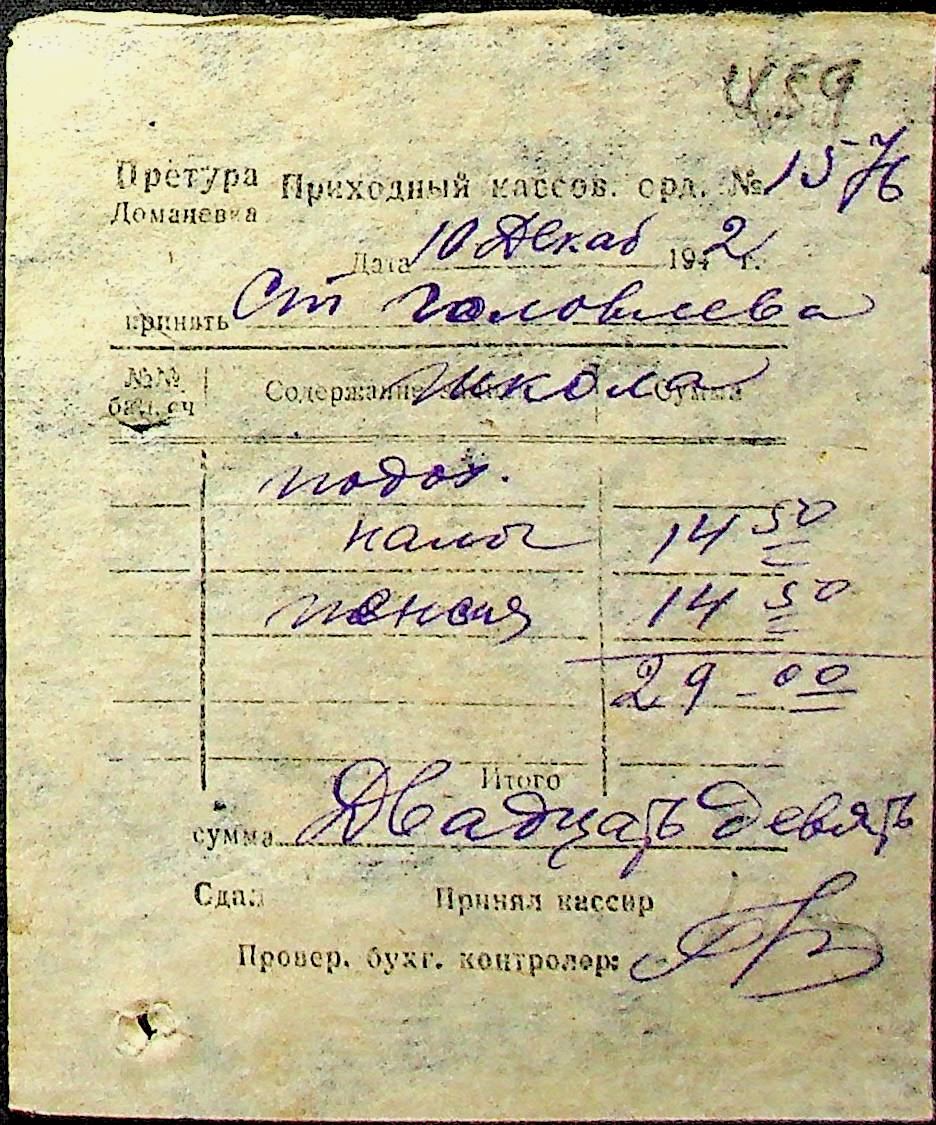 459
Претура Приходный кассов. орд. № 1576
Доманевка
Дата 10 Декаб 1942 г.
принять Ст Головлева
№№ бал. сч Содержание Сумма
школа
подох.
налог 14 50
пенсия 14 50
29-00
Итого
сумма Двадцать девять
Сдал Принял кассир
Провер. бухг. контролер: